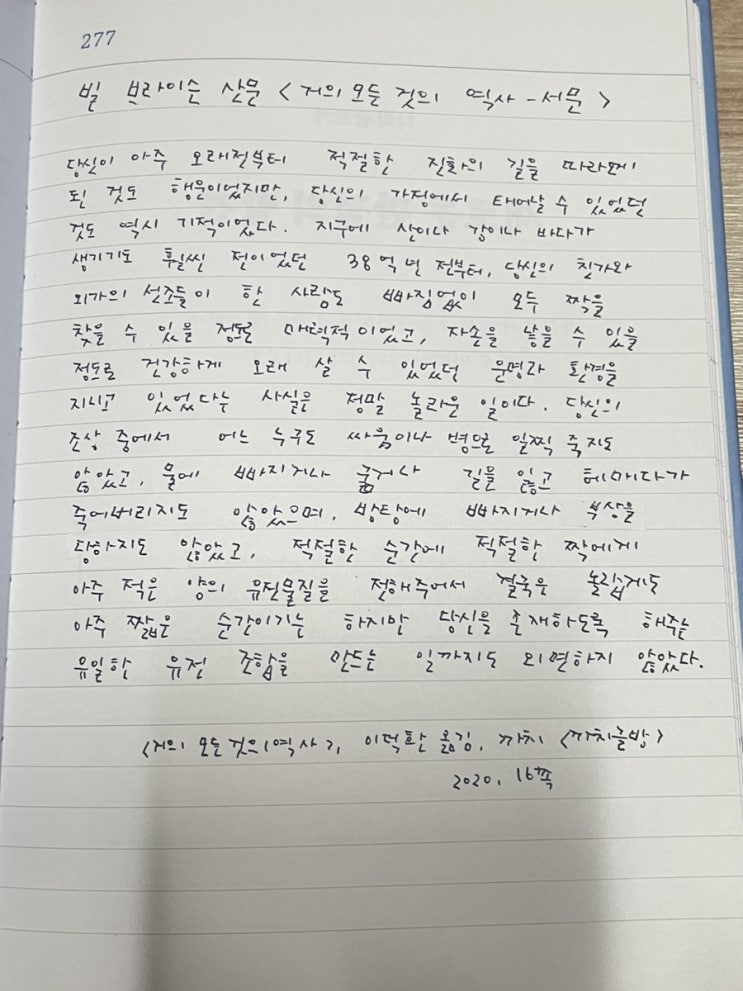 277
빌 브라이슨 산문 <거의 모든 것의 역사 - 서문>
당신이 아주 오래전부터 적절한 진화의 길을 따라오게
된 것도 행운이었지만, 당신의 가정에서 태어날 수 있었던
것도 역시 기적이었다. 지구에 산이나 강이나 바다가
생기기도 훨씬 전이었던 38억 년 전부터, 당신의 친가와
외가의 선조들이 한 사람도 빠짐없이 모두 짝을
찾을 수 있을 정도로 매력적이었고, 자손을 낳을 수 있을
정도로 건강하게 오래 살 수 있었던 운명과 환경을
지니고 있었다는 사실은 정말 놀라운 일이다. 당신의
조상 중에서 어느 누구도 싸움이나 병으로 일찍 죽지도
않았고, 물에 빠지거나 굶거나 길을 잃고 헤매다가
죽어버리지도 않았으며, 방탕에 빠지거나 부상을
당하지도 않았고, 적절한 순간에 적절한 짝에게
아주 적은 양의 유전물질을 전해주어서 결국은 놀랍게도
아주 짧은 순간이기는 하지만 당신을 존재하도록 해주는
유일한 유전 조합을 만드는 일까지도 외면하지 않았다.
<거의 모든 것의 역사>, 이덕환 옮김, 까치 <까치글방>
2020, 16쪽